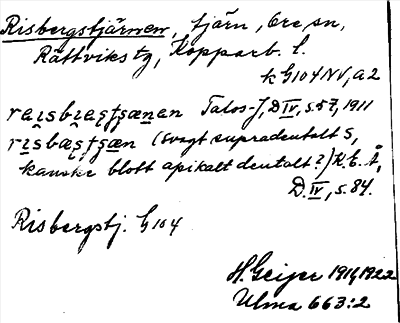 Risbergstjärnen, tjärn, Ore sn,
Rättviks tg, Kopparb. l.
k G104 NV, a2
Talos-J, D IV, s. 57, 1911
(svagt supradentalt s,
kanske blott apikalt dentalt?) K.E. Å,
D. IV, s. 84.
Risbergstj. G 104
H. Geijer 1914, 1922
Ulma 663:2